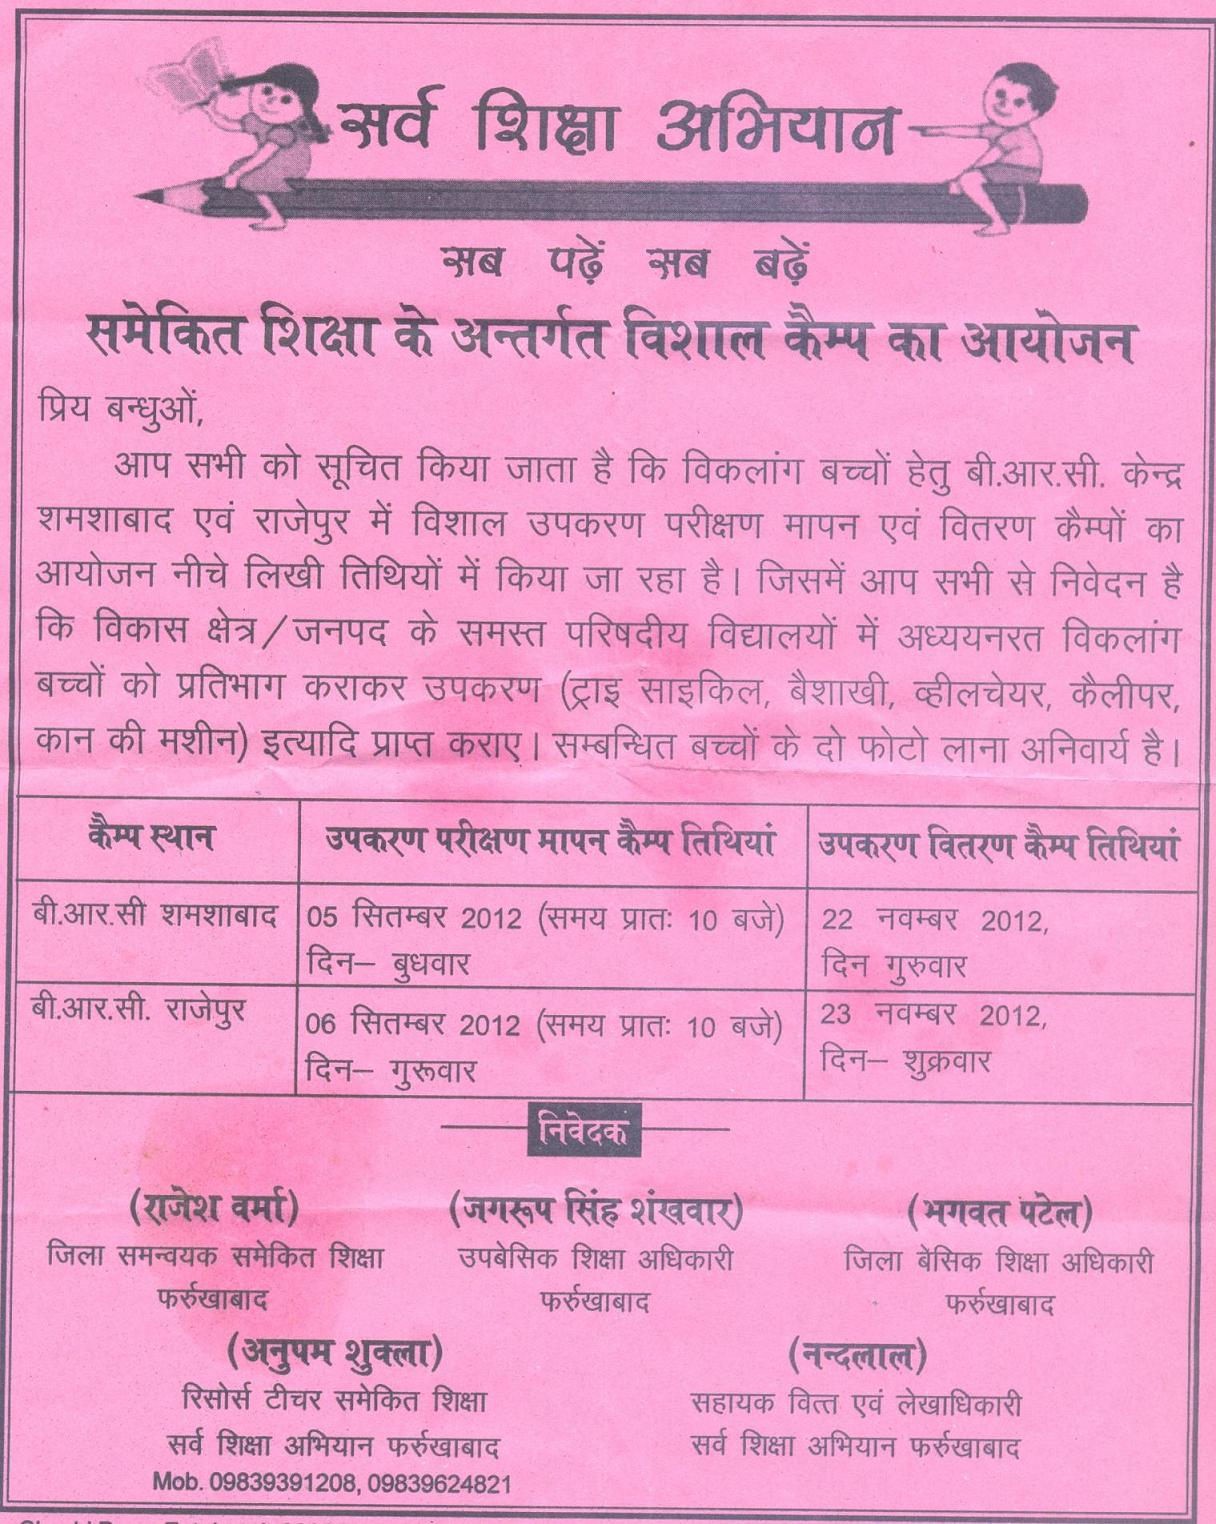 सर्व शिक्षा अभियान
सब पढ़ें सब बढ़ें
समेकित शिक्षा के अन्तर्गत विशाल कैम्प का आयोजन
प्रिय बन्धुओं,
आप सभी को सूचित किया जाता है कि विकलांग बच्चों हेतु बी.आर.सी. केन्द्र
शमशाबाद एवं राजेपुर में विशाल उपकरण परीक्षण मापन एवं वितरण कैम्पों का
आयोजन नीचे लिखी तिथियों में किया जा रहा है। जिसमें आप सभी से निवेदन है
कि विकास क्षेत्र/जनपद के समस्त परिषदीय विद्यालयों में अध्ययनरत विकलांग
बच्चों को प्रतिभाग कराकर उपकरण (ट्राइ साइकिल, बैशाखी, व्हीलचेयर, कैलीपर,
कान की मशीन) इत्यादि प्राप्त कराए। सम्बन्धित बच्चों के दो फोटो लाना अनिवार्य है।
कैम्प स्थान उपकरण परीक्षण मापन कैम्प तिथियां उपकरण वितरण कैम्प तिथियां
बी.आर.सी शमशाबाद 05 सितम्बर 2012 (समय प्रातः 10 बजे) 22 नवम्बर 2012,
दिन– बुधवार दिन गुरुवार
बी.आर.सी. राजेपुर 06 सितम्बर 2012 (समय प्रातः 10 बजे) 23 नवम्बर 2012,
दिन– गुरूवार दिन– शुक्रवार
निवेदक
(राजेश वर्मा) (जगरूप सिंह शंखवार) (भगवत पटेल)
जिला समन्वयक समेकित शिक्षा उपबेसिक शिक्षा अधिकारी जिला बेसिक शिक्षा अधिकारी
फर्रुखाबाद फर्रुखाबाद फर्रुखाबाद
(अनुपम शुक्ला) (नन्दलाल)
रिसोर्स टीचर समेकित शिक्षा सहायक वित्त एवं लेखाधिकारी
सर्व शिक्षा अभियान फर्रुखाबाद सर्व शिक्षा अभियान फर्रुखाबाद
Mob. 09839391208, 09839624821